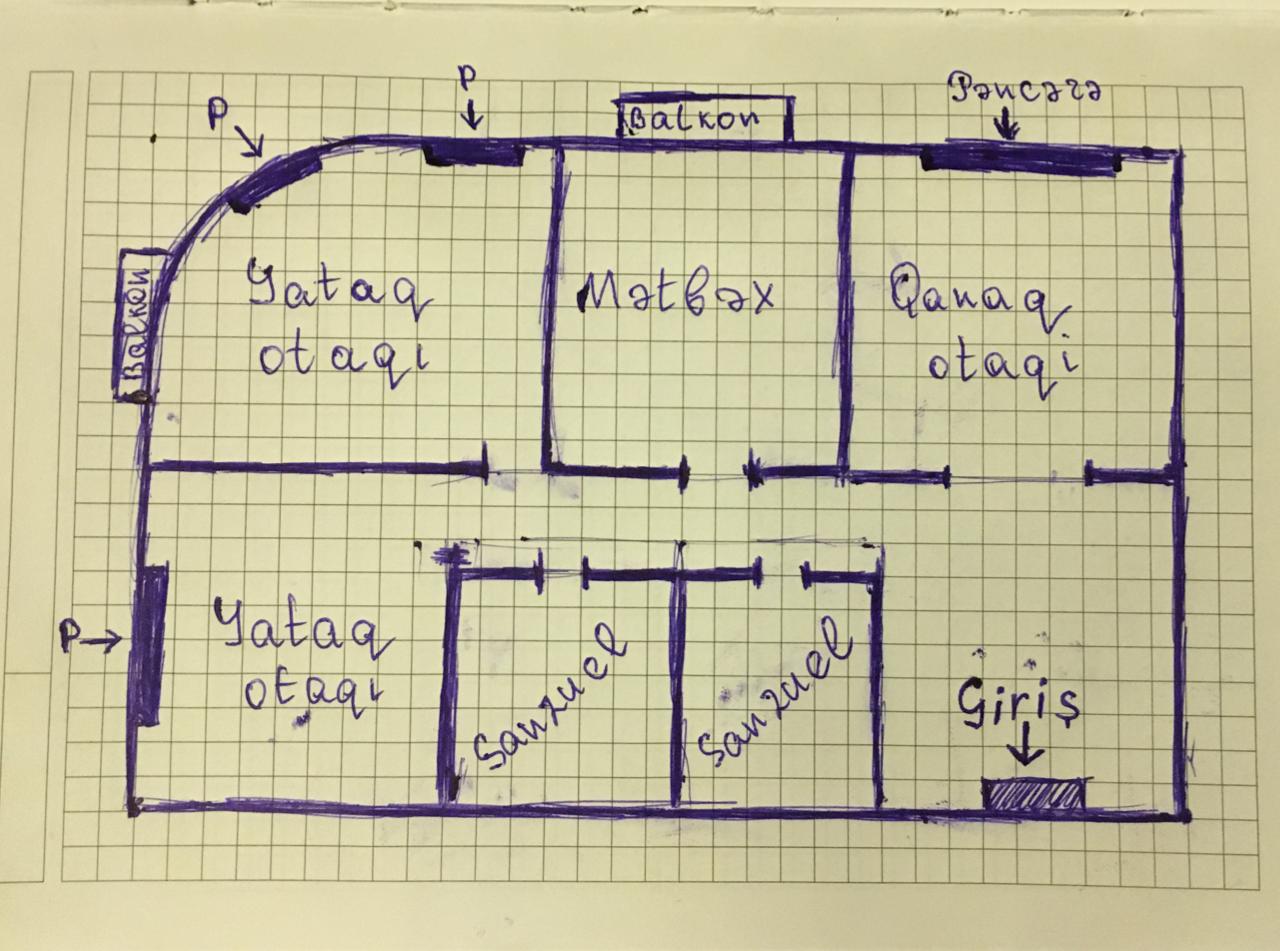 P
P
Balkon
Pəncərə
Balkon
Yataq
otaqı
Mətbəx
Qanaq
otaqi
P
Yataq
otaqı
Sanzuel
Sanzuel
Giriş